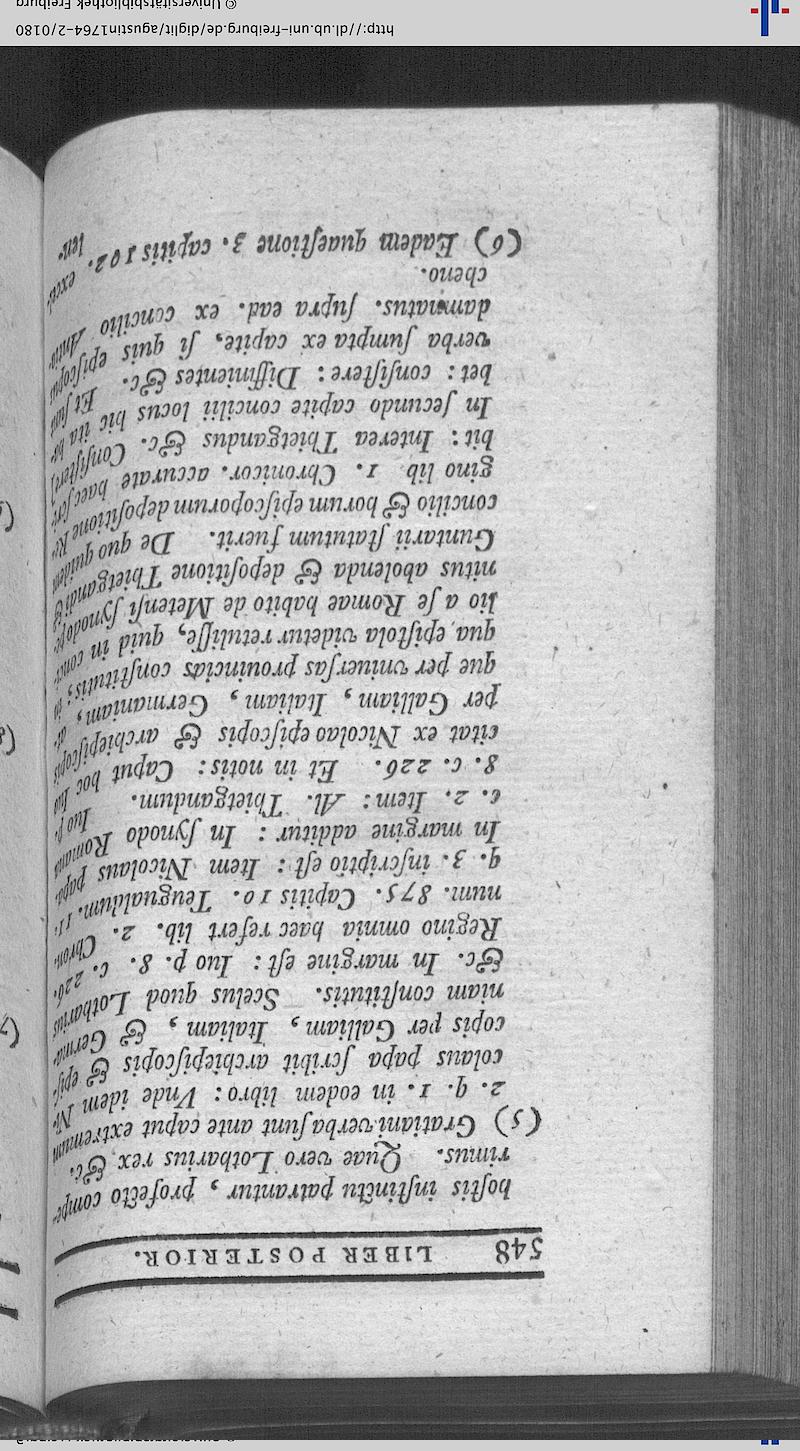 548 LIBER POSTERIOR.
hostis instinctu patrantur, profecto compe-
rimus. Quae vero Lotharius rex &c.
(5) Gratiani verba sunt ante caput extremum
2. q. 1. in eodem libro: Vnde idem Ni-
colaus papa scribit archiepiscopis & epis-
copis per Galliam, Italiam, & Germa-
niam constitutis. Scelus quod Lotharius
&c. In margine est: Iuo p. 8. c. 226.
Regino omnia haec refert lib. 2. Chron.
num. 875. Capitis 10. Teugualdum. 11.
q. 3. inscriptio est: Item Nicolaus papa.
In margine additur: In synodo Romana
c. 2. Item: Al. Thietgandum. Iuo p.
8. c. 226. Et in notis: Caput hoc Iuo
citat ex Nicolao episcopis & archiepiscopis
per Galliam, Italiam, Germaniam, at-
que per vniuersas prouincias constitutis; in
qua epistola videtur retulisse, quid in conci-
lio a se Romae habito de Metensi synodo pe-
nitus abolenda & depositione Thietgandi &
Guntarii statutum fuerit. De quo quidem
concilio & horum episcoporum depositione Re-
gino lib 1. Chronicor. accurate haec scri-
bit: Interea Thietgandus &c. Consistere)
In secundo capite concilii locus hic ita ha-
bet: consistere: Diffinientes &c. Et sunt
verba sumpta ex capite, si quis episcopus
damnatus. supra ead. ex concilio Antio-
cheno.
(6) Eadem quaestione 3. capitis 102. excel-
len-
http://dl.ub.uni-freiburg.de/diglit/agustin1764-2/0180
© Universitätsbibliothek Freiburg